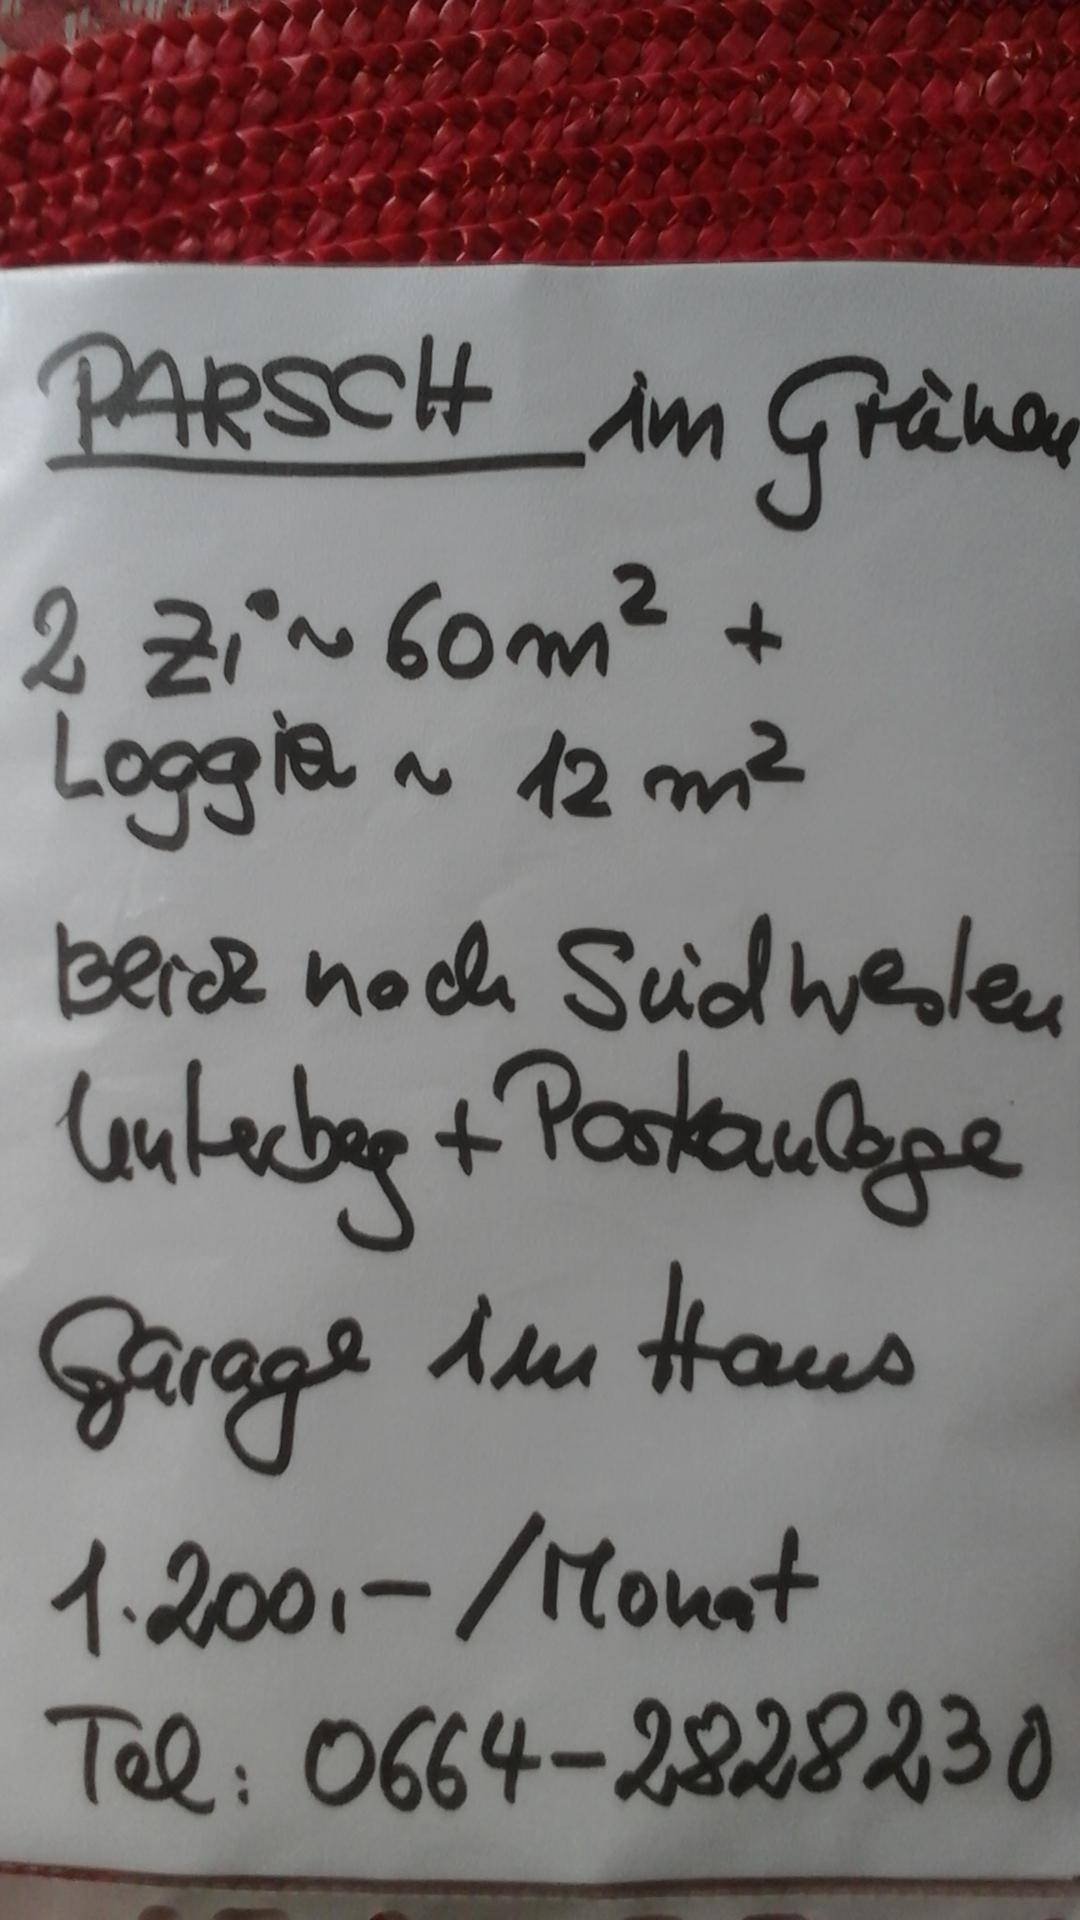 PARSCH im Grünen
2 Zi ~ 60m² +
Loggia ~ 12 m²
Blick nach Südwesten
Untersberg + Parkanlage
Garage im Haus
1.200,- /Monat
Tel: 0664-2828230